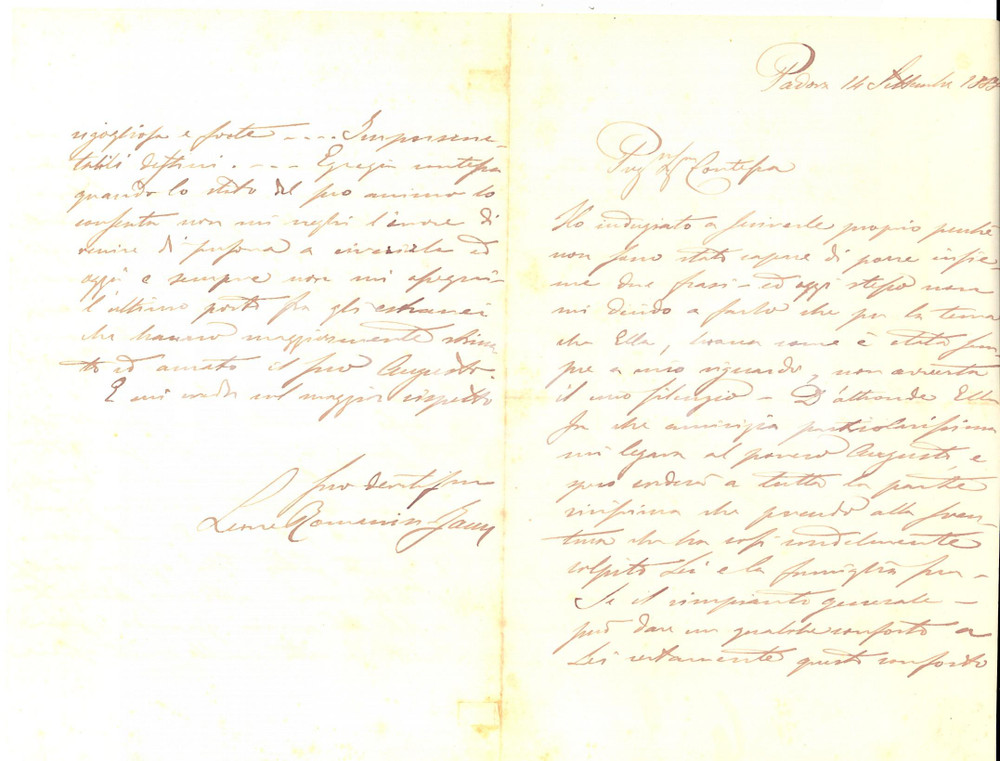 Padova 14 Settembre 188
Preg.ma Contessa
Ho indugiato a scriverle proprio perchè
non sono stato capace di porre insie-
me due frasi – ed oggi stesso non
mi decido a farlo che per la tema
che Ella, buona come è stata sem
pre a mio riguardo, non avverta
il mio silenzio – D'altronde Ella
sa che amicizia particolarissima
mi legava al povero Augusto, e
però crederà a tutta la parte
vivissima che prendo alla sven-
tura che ha così crudelmente
colpito Lei e la famiglia sua –
Se il rimpianto generale –
può dare un qualche conforto a
Lei certamente questo conforto
rigogliosa e forte – ... Imperscru-
tabili destini. – ... Egregia contessa
quando lo stato del suo animo lo
consenta non mi neghi l'onore di
venire di persona a riverirla ed
oggi e sempre non mi assegni
l'ultimo posto fra gli estranei
che hanno maggiormente stima
to ed amato il suo Augusto.
E mi creda col maggior rispetto
suo devotissimo
Leone Romanin Jacur